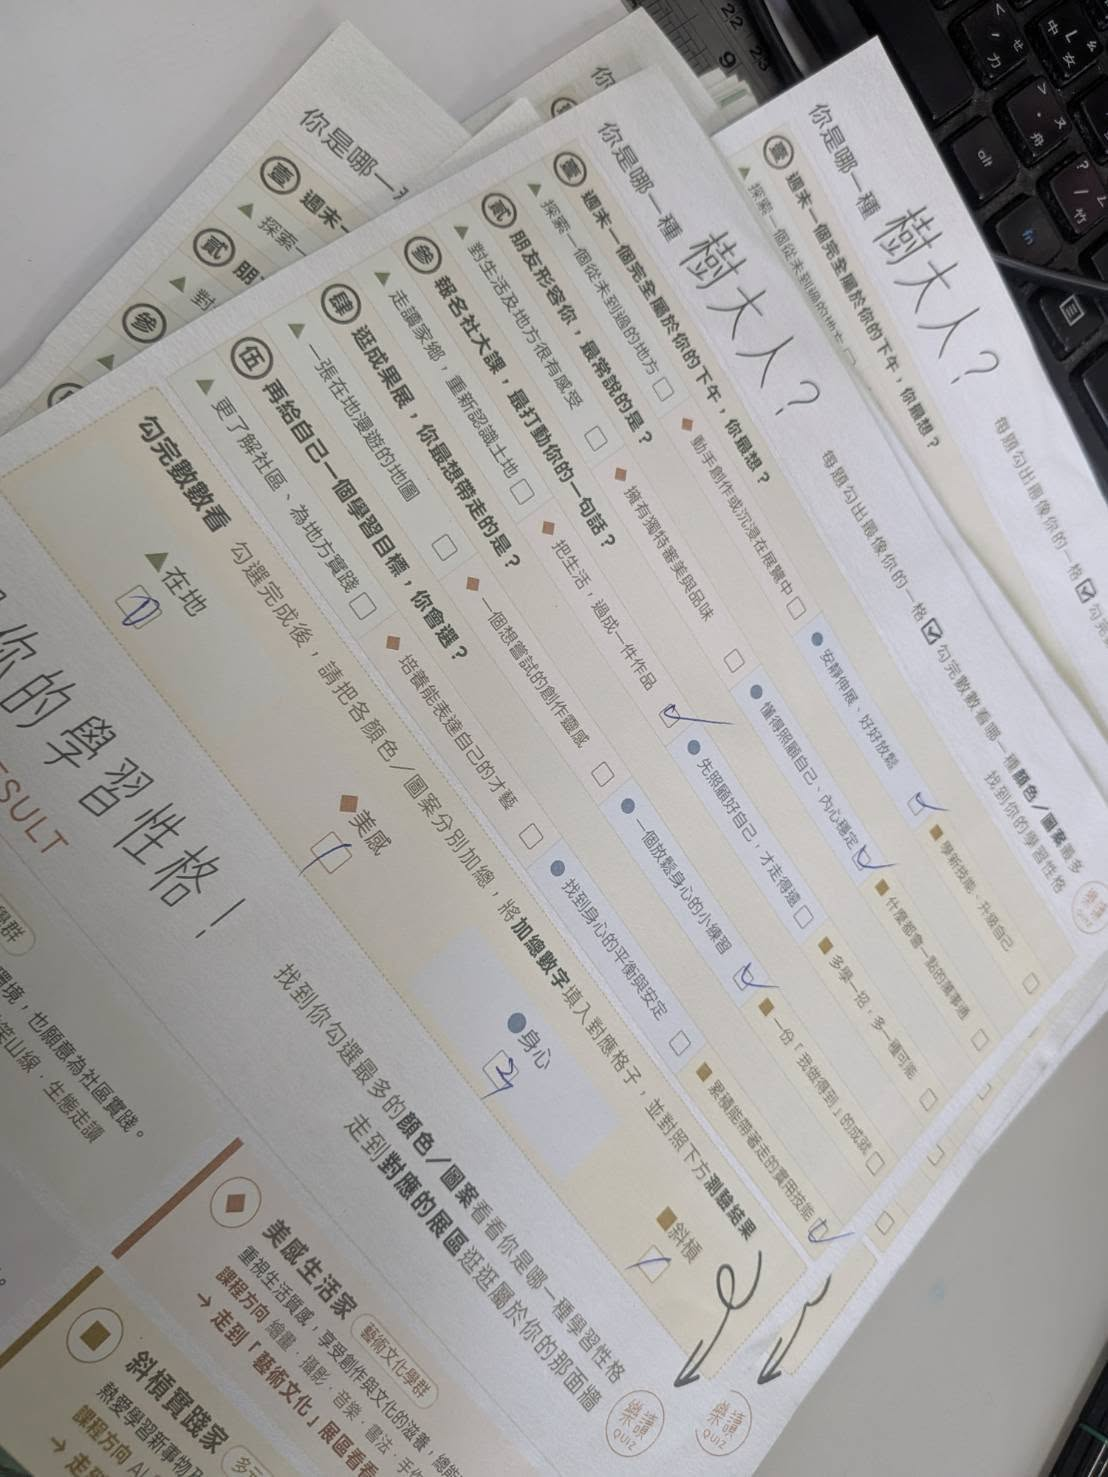 你是哪一種 樹大人?
每題勾出最像你的一格☑勾完數數看哪一種顏色/圖案最多
找到你的學習性格
樂讀 QUIZ
壹 週末一個完全屬於你的下午,你最想?
▲ 探索一個從未到過的地方 □
◆ 動手創作或沉浸在展覽中 □
● 安靜伸展、好好放鬆
■ 學新技能、升級自己 □
貳 朋友形容你,最常說的是?
▲ 對生活及地方很有感受 □
◆ 擁有獨特審美與品味 □
● 懂得照顧自己、內心穩定
■ 什麼都會一點的萬事通 □
參 報名社大課,最打動你的一句話?
▲ 走讀家鄉,重新認識土地 □
◆ 把生活,過成一件作品
● 先照顧好自己,才走得遠 □
■ 多學一招,多一種可能 □
肆 逛成果展,你最想帶走的是?
▲ 一張在地漫遊的地圖 □
◆ 一個想嘗試的創作靈感 □
● 一個放鬆身心的小練習
■ 一份「我做得到」的成就 □
伍 再給自己一個學習目標,你會選?
▲ 更了解社區、為地方實踐 □
◆ 培養能表達自己的才藝 □
● 找到身心的平衡與安定 □
■ 累積能帶著走的實用技能
勾完數數看 勾選完成後,請把各顏色/圖案分別加總,將加總數字填入對應格子,並對照下方測驗結果
▲在地
0
◆美感
1
●身心
3
■斜槓
1
你的學習性格!
SULT
找到你勾選最多的顏色/圖案看看你是哪一種學習性格
走到對應的展區逛逛屬於你的那面牆
樂讀 QUIZ
學群
環境,也願意為社區實踐。
山線.生態走讀
美感生活家 藝術文化學群
重視生活質感,享受創作與文化的滋養,
課程方向 繪畫.攝影.音樂.書法.手作
→ 走到「藝術文化」展區看看
斜槓實踐家
熱愛學習新事物
課程方向 AI
→ 走到
你是哪一種 樹大人?
每題勾出最像你的一格☑勾完
壹 週末一個完全屬於你的下午,你最想?
▲ 探索一個從未到過的地方
樂讀 QUIZ
你是哪一
壹 週末一
▲ 探索一
貳 朋
▲ 對
參
你
22 23
9
alt
fn